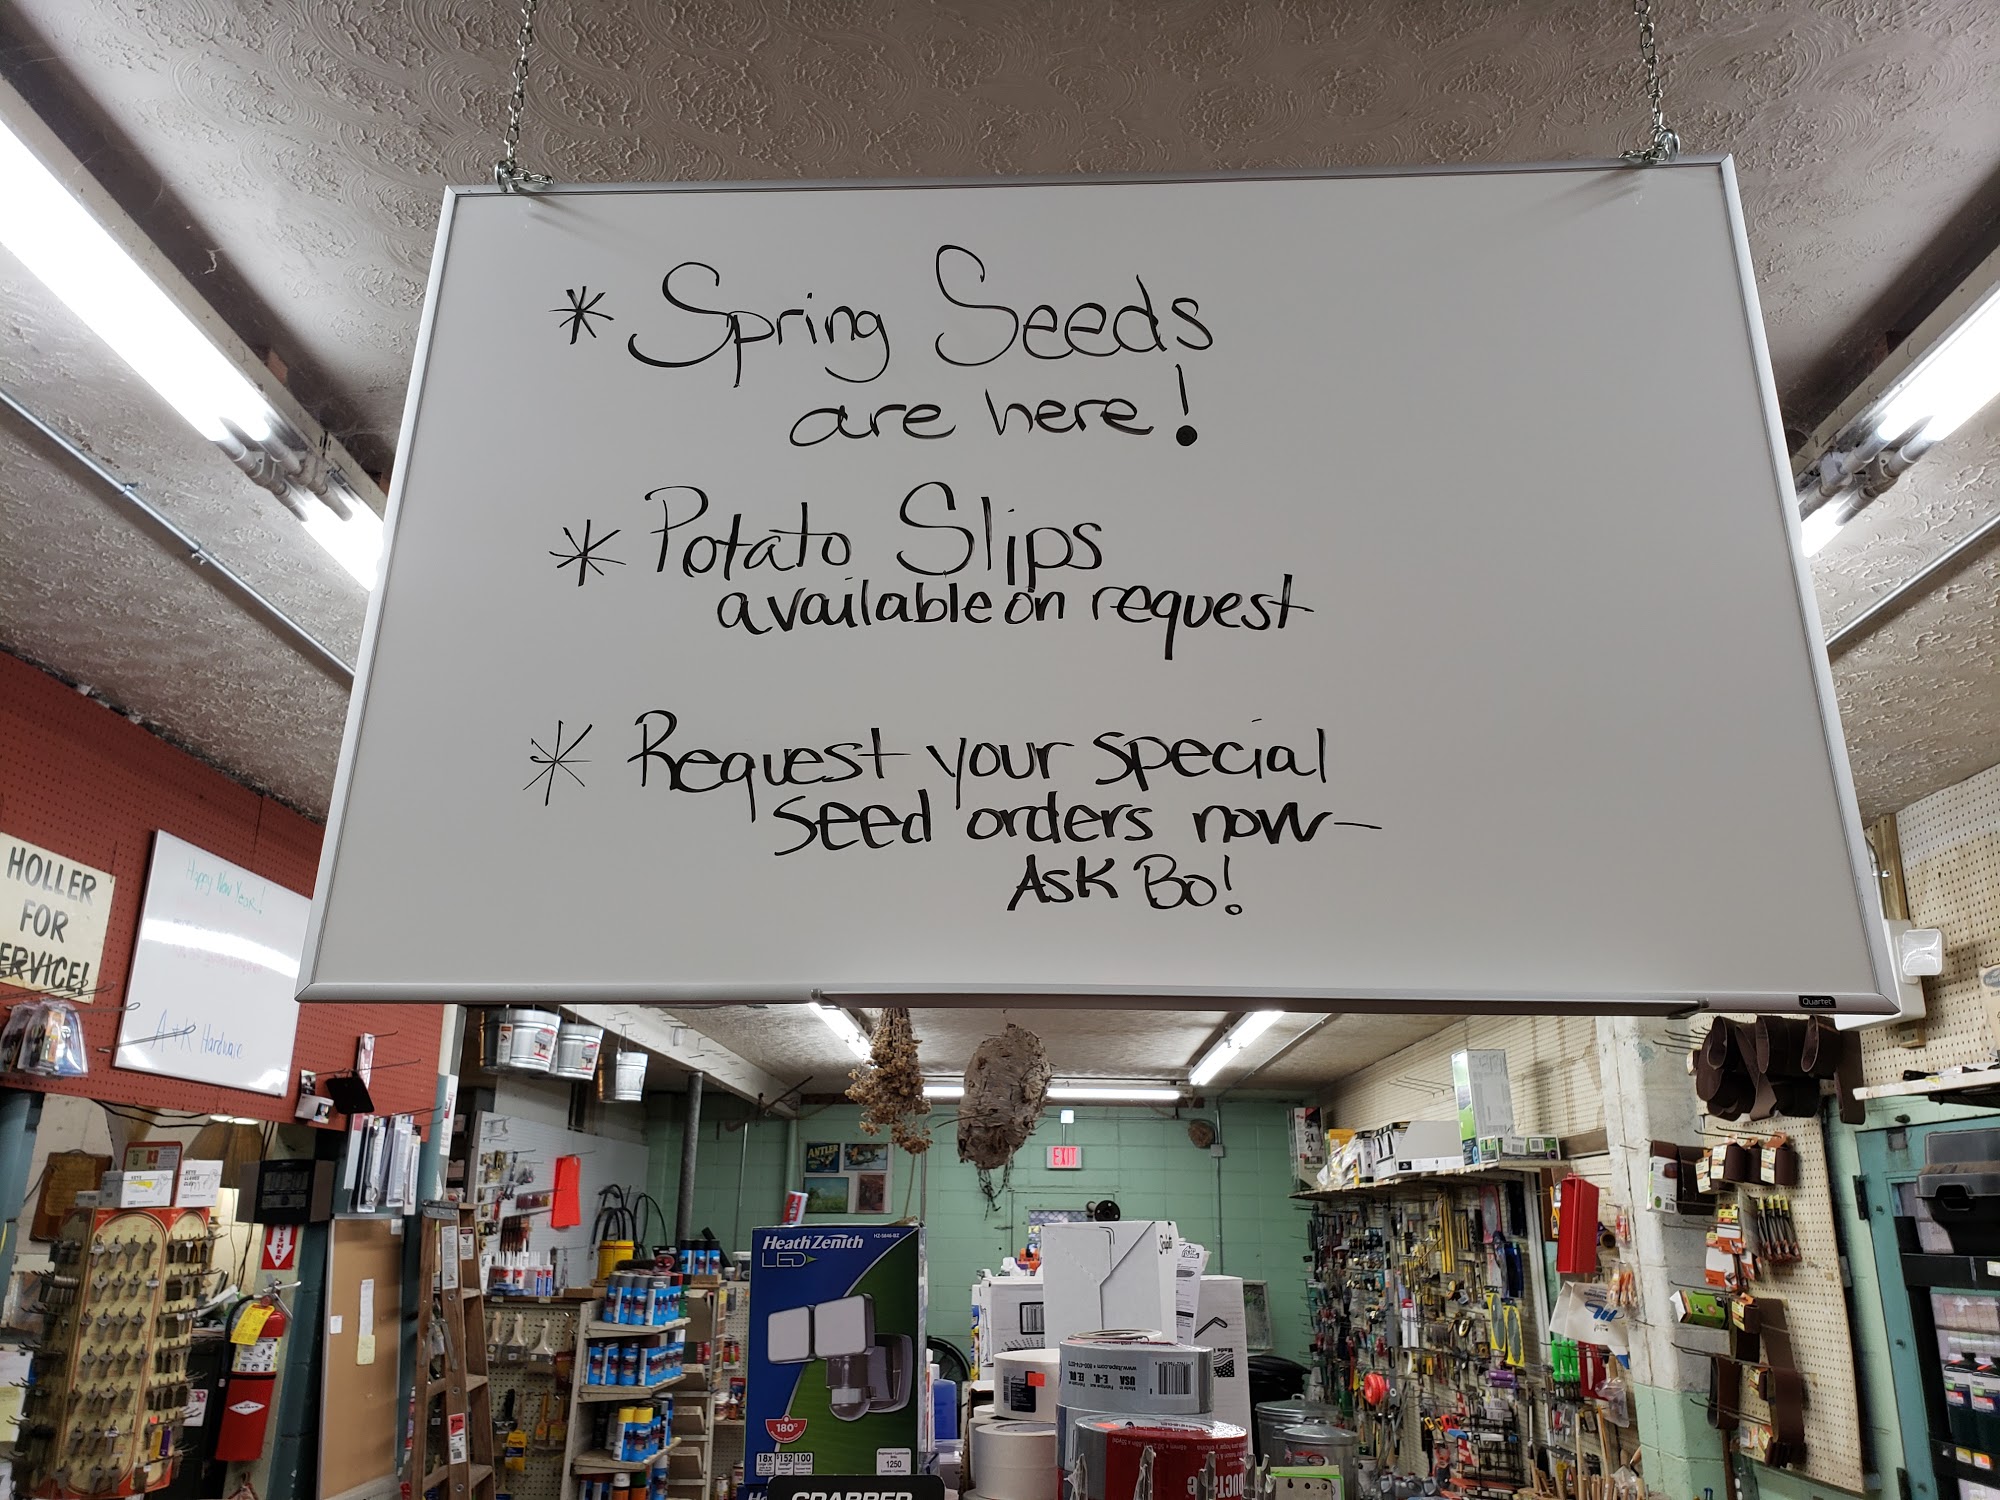 * Spring Seeds
are here!
* Potato Slips
available on request
* Request your special
seed orders now-
Ask Bo!
Quartet
HOLLER
FOR
ERVICE!
Happy New Year!
A+K Hardware
ANTLER
EXIT
Heath Zenith
LED
180°
18x
152
100
1250
GRABBER